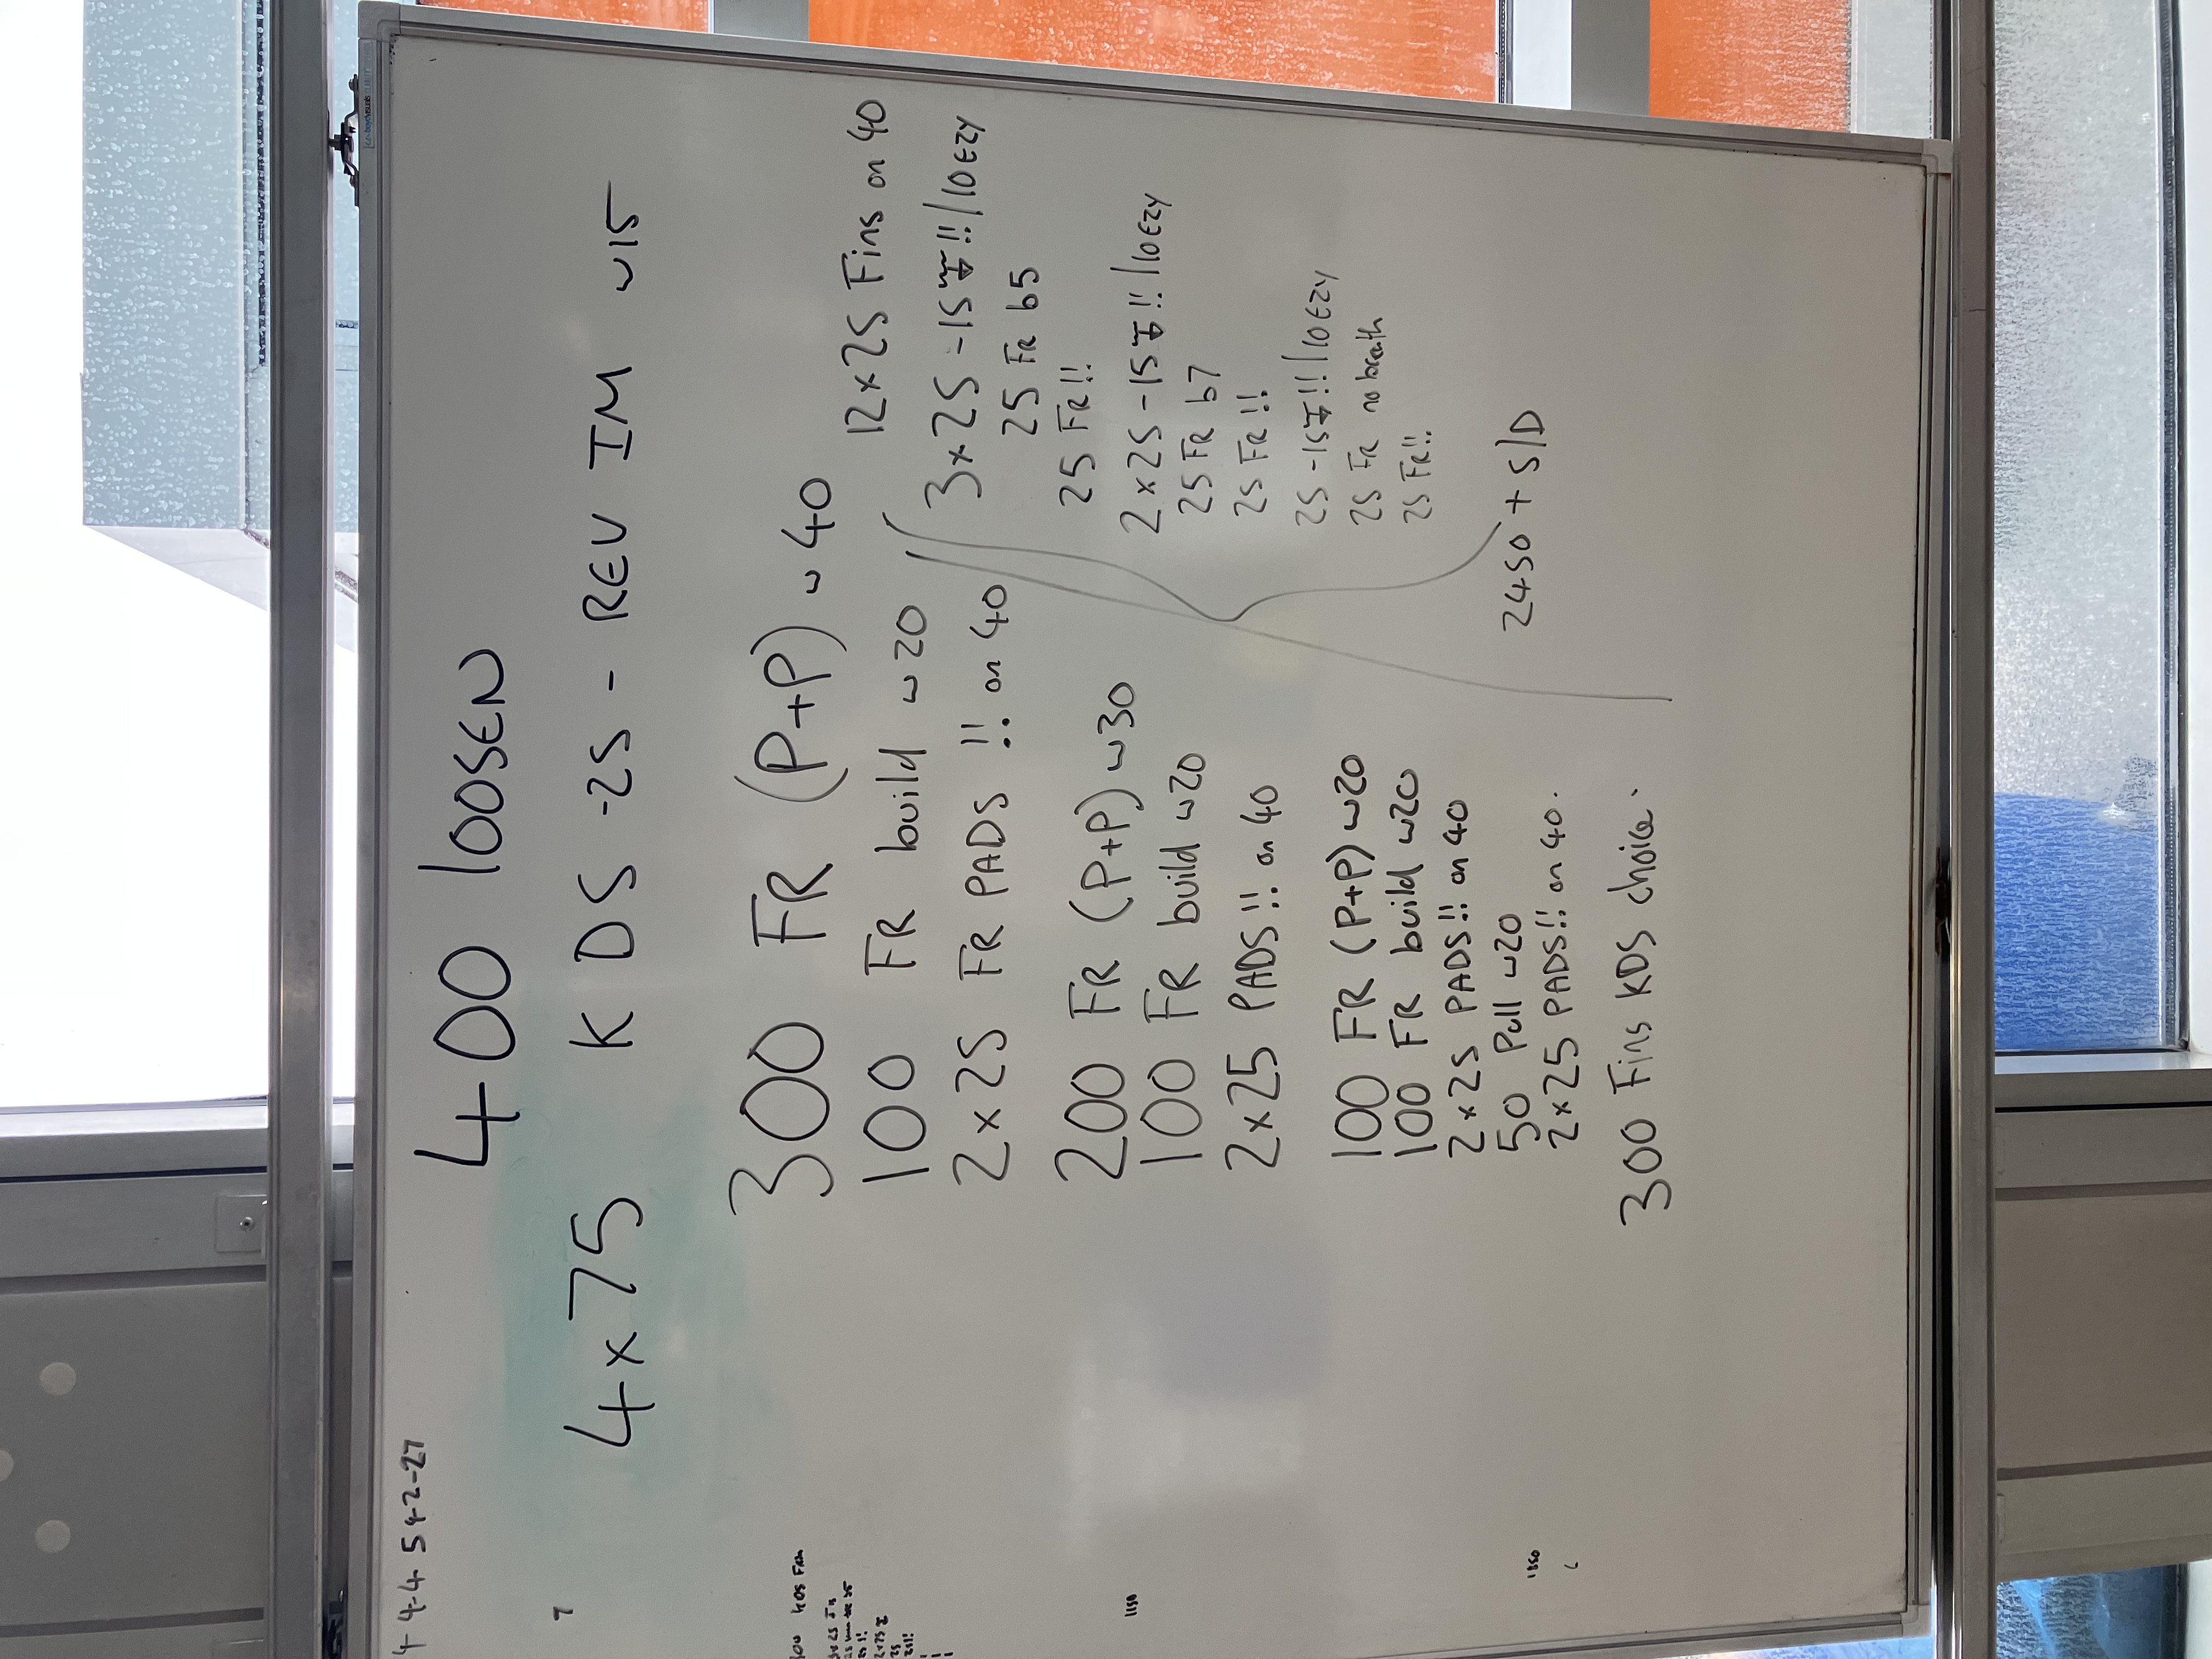 4-4-4 5 4-2-27
400 loosen
4x75 KDS -25 - REV IM w15
300 FR (P+P) w40
100 FR build w20
2x25 FR PADS !! on 40
200 FR (P+P) w30
100 FR build w20
2x25 PADS!! on 40
100 FR (P+P) w20
100 FR build w20
2x25 PADS!! on 40
50 Pull w20
2x25 PADS!! on 40.
300 Fins KDS choice.
12x25 Fins on 40
3x25 -15 !!/10EZY
25 FR b5
25 FR!!
2x25 -15 !!/10EZY
25 FR b7
25 FR!!
25 -15 !!/10EZY
25 FR no breath
25 FR!!
2450 + S/D
1150
1850